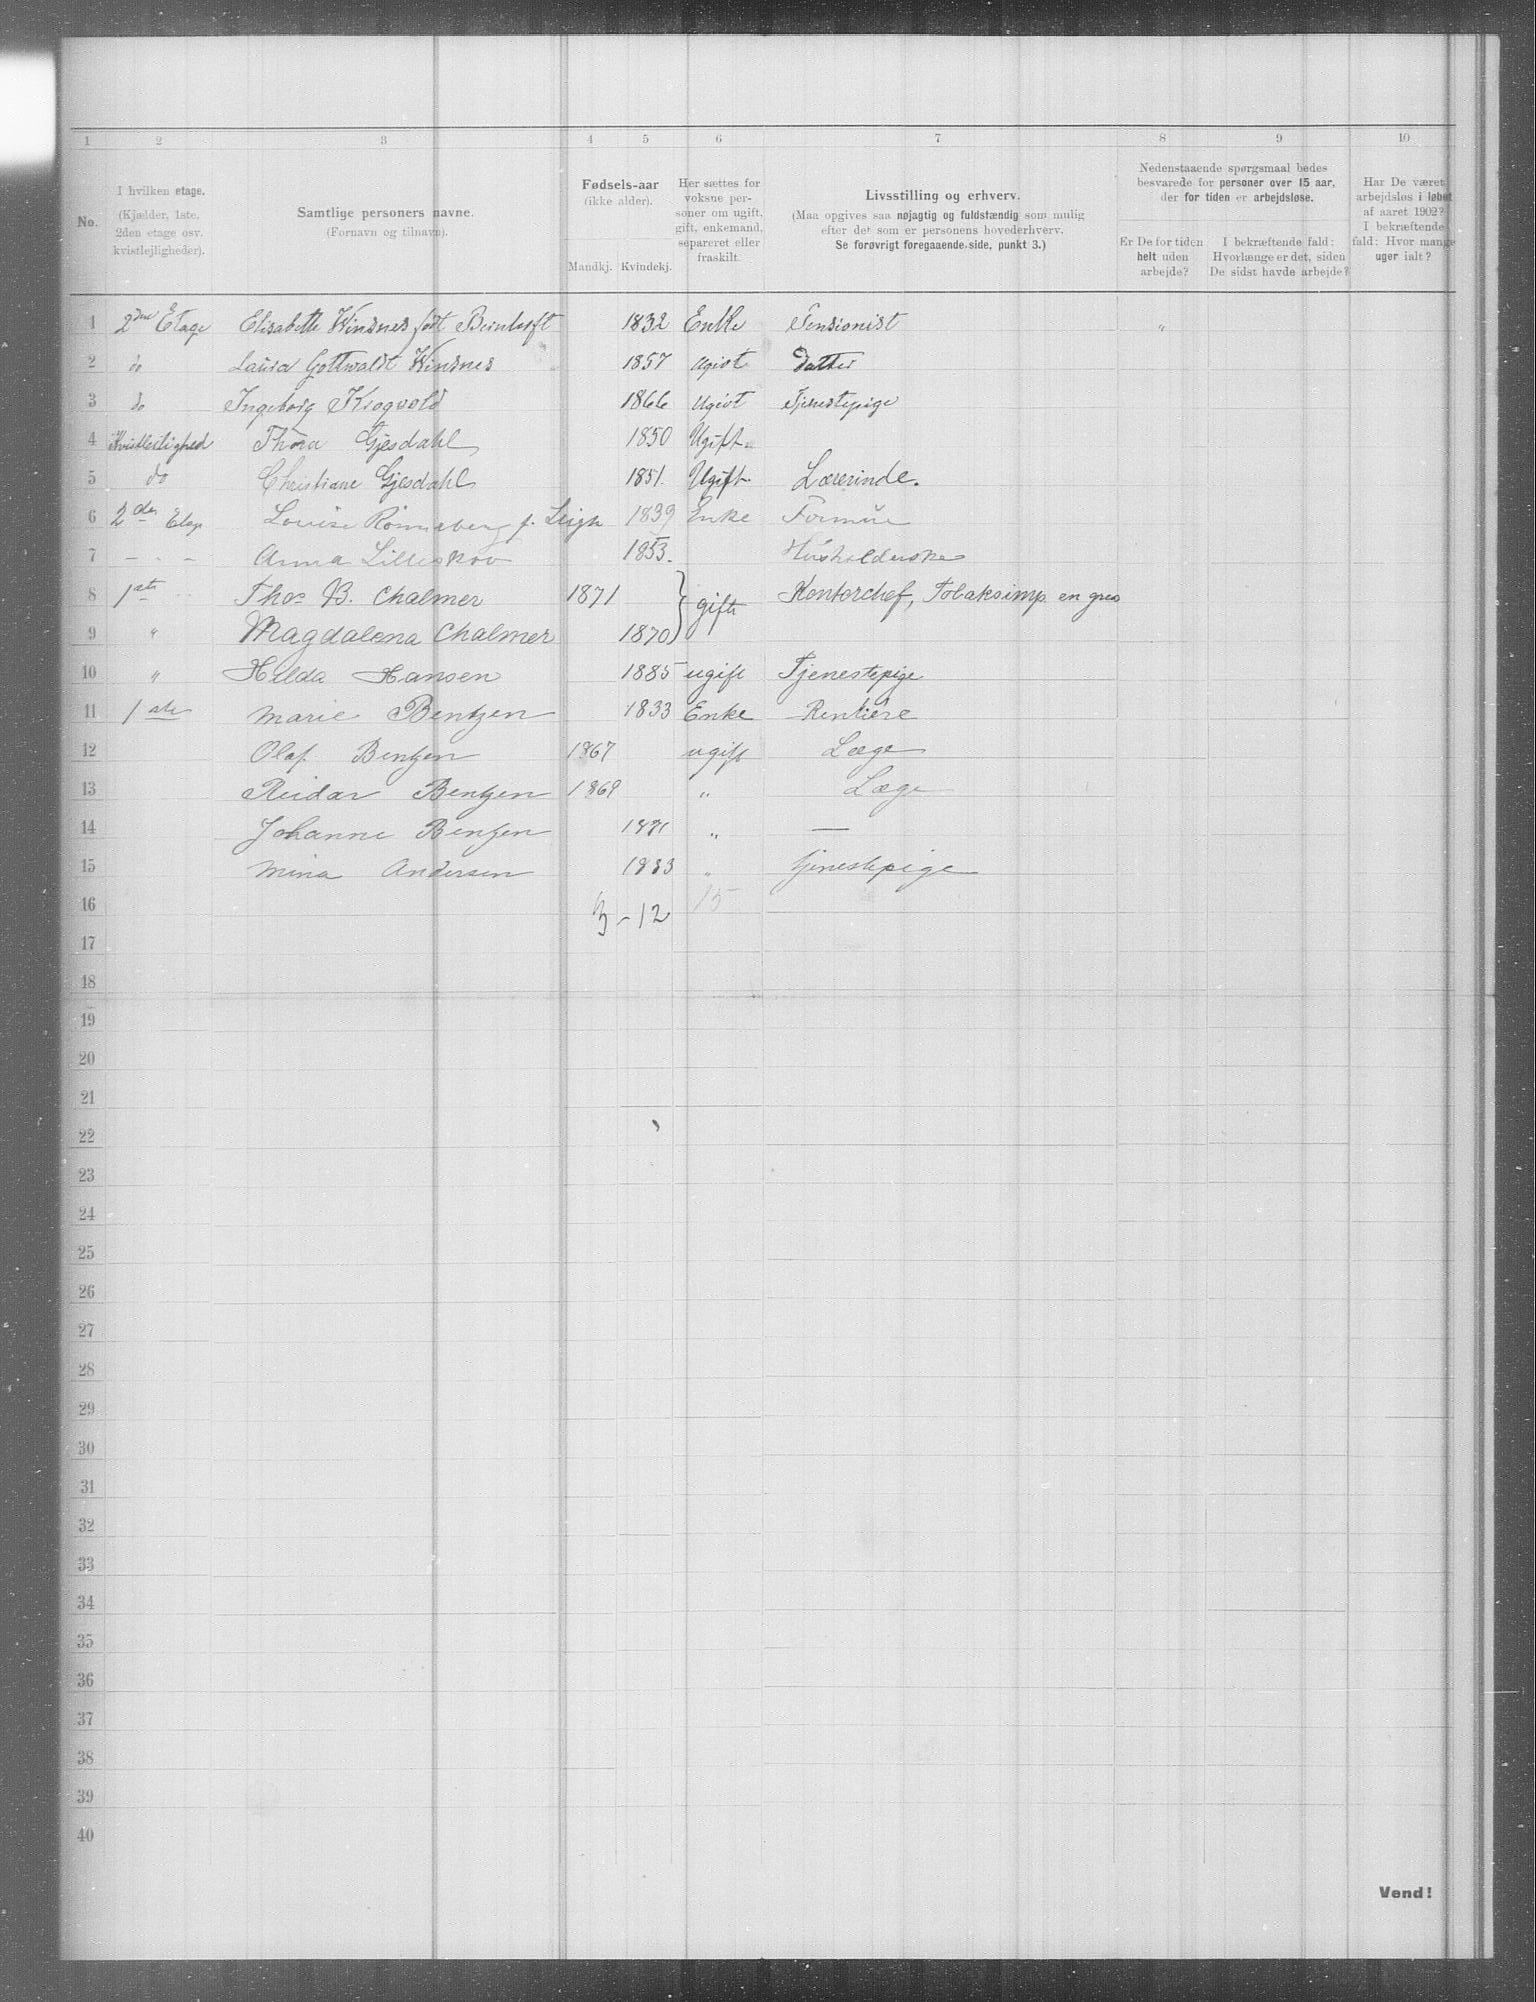 1 2 3 4 5 6 7 8 9 10
No.
I hvilken etage.
(Kjælder, 1ste, 2den etage osv. kvistlejligheder).
Samtlige personers navne.
(Fornavn og tilnavn).
Fødsels-aar
(ikke alder).
Mandkj. Kvindekj.
Her sættes for voksne personer om ugift, gift, enkemand, separeret eller fraskilt.
Livsstilling og erhverv.
(Maa opgives saa nøjagtig og fuldstændig som mulig
efter det som er personens hovederhverv.
Se forøvrigt foregaaende side, punkt 3.)
Nedenstaaende spørgsmaal bedes
besvarede for personer over 15 aar,
der for tiden er arbejdsløse.
Er De for tiden helt uden arbejde?
I bekræftende fald: Hvorlænge er det, siden De sidst havde arbejde?
Har De været arbejdsløs i løbet af aaret 1902? I bekræftende fald: Hvor mange uger ialt?
1 2den Etage Elisabette Windsnes født 1832 Enke Pensionist "
2 do Laura Gottwaldt Windsnes 1857 Ugivt Datter
3 do Ingeborg Krogvold 1866 Ugivt Tjenestepige
4 Kvistleilighed Thora Gjesdahl 1850 Ugift.
5 do Christiane Gjesdahl 1851. Ugift. Lærerinde.
6 2den Etage Louise Rønneberg f. Leigh 1839 Enke Formue
7 - . - Anna Lilleskov 1853. Husholderske
8 1ste Thos B. Chalmer 1871 } gifte Kontorchef, Tobaksimp. en gros
9 " Magdalena Chalmer 1870
10 " Hilda Hansen 1885 ugift Tjenestepige
11 1ste Marie Bentzen 1833 Enke Rentière
12 Olaf Bentzen 1867 ugift Læge
13 Reidar Bentzen 1869 " Læge
14 Johanne Bentzen 1871 " —
15 Mina Andersen 1883 " tjenestepige
16 3 - 12 15
17
18
19
20
21
22
23
24
25
26
27
28
29
30
31
32
33
34
35
36
37
38
39
40
Vend!